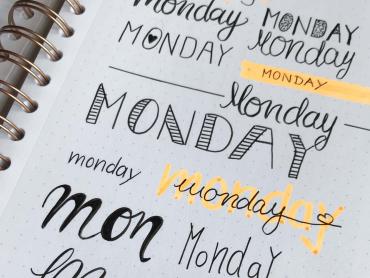 Monday
MONDAY
MONDAY
Monday
MONDAY
Monday
MONDAY
monday
monday
monday
mon
MonDaY